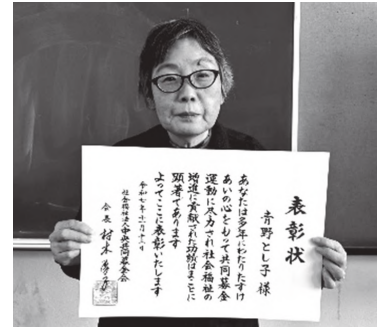 表彰状
青野とし子 様
あなたは多年にわたりたすけ
あいの心をもって共同募金
運動に尽力され社会福祉の
増進に貢献された功績はまことに
顕著であります
よってここに表彰いたします
令和七年十一月十一日
社会福祉法人中央共同募金会
会長 村木厚子